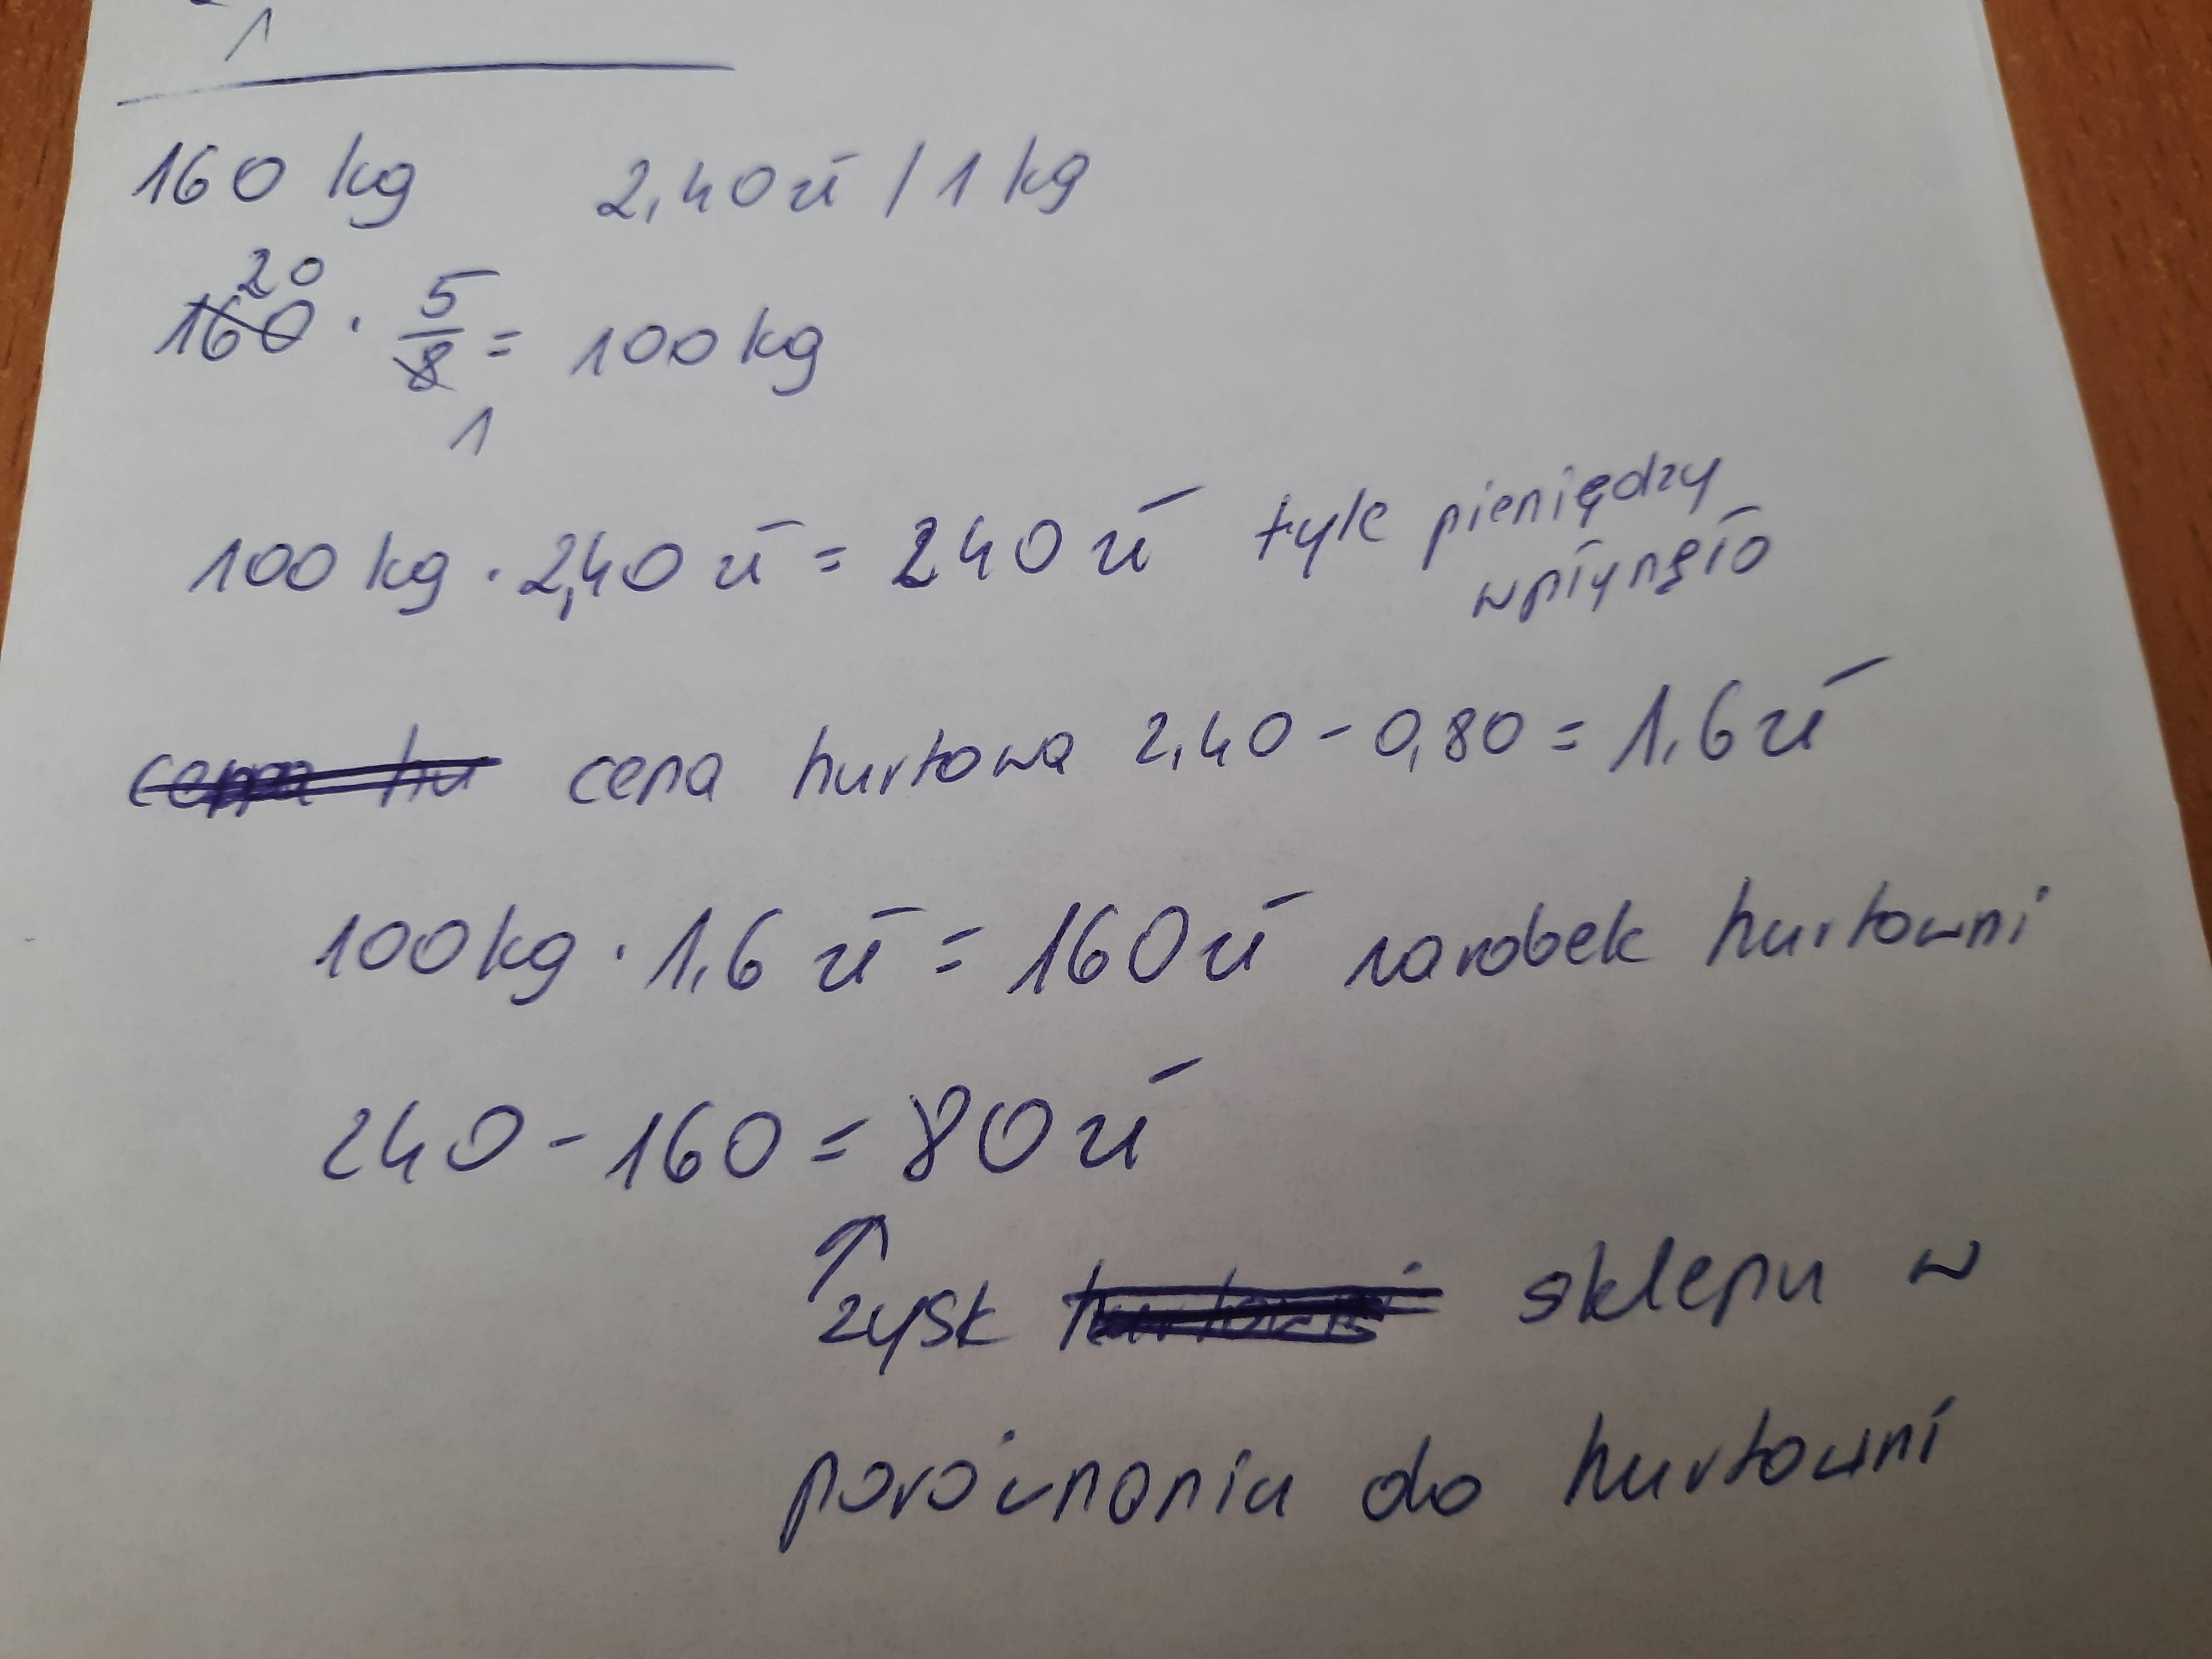 1
160 kg 2,40 zł / 1 kg
20
160 · 5/8 = 100 kg
1
100 kg · 2,40 zł = 240 zł tyle pieniędzy
wpłynęło
cena hu cena hurtowa 2,40 - 0,80 = 1,6 zł
100 kg · 1,6 zł = 160 zł zarobek hurtowni
240 - 160 = 80 zł
↑
zysk hurtowni sklepu w
porównaniu do hurtowni